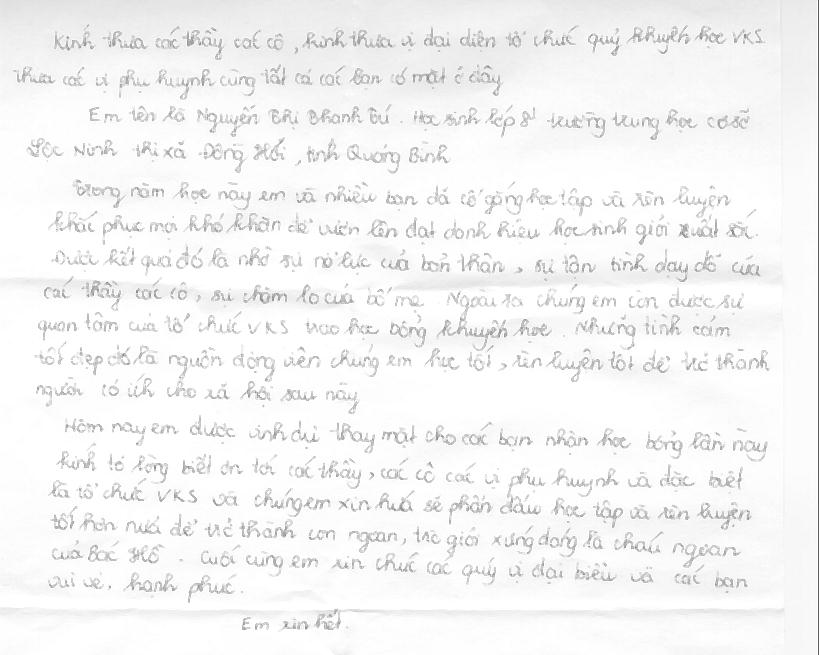 Kính thưa các thầy các cô, kính thưa vị đại diện tổ chức quỹ khuyến học VKS
Thưa các vị phụ huynh cùng tất cả các bạn có mặt ở đây
Em tên là Nguyễn Thị Thanh Tú. Học sinh lớp 8¹ trường trung học cơ sở
Lộc Ninh thị xã Đồng Hới, tỉnh Quảng Bình
Trong năm học này em và nhiều bạn đã cố gắng học tập và rèn luyện
khắc phục mọi khó khăn để vươn lên đạt danh hiệu học sinh giỏi xuất sắc.
Được kết quả đó là nhờ sự nỗ lực của bản thân, sự tận tình dạy dỗ của
các thầy các cô, sự chăm lo của bố mẹ. Ngoài ra chúng em còn được sự
quan tâm của tổ chức VKS trao học bổng khuyến học. Những tình cảm
tốt đẹp đó là nguồn động viên chúng em học tốt, rèn luyện tốt để trở thành
người có ích cho xã hội sau này
Hôm nay em được vinh dự thay mặt cho các bạn nhận học bổng lần này
kính tỏ lòng biết ơn tới các thầy, các cô các vị phụ huynh và đặc biệt
là tổ chức VKS và chúng em xin hứa sẽ phấn đấu học tập và rèn luyện
tốt hơn nữa để trở thành con ngoan, trò giỏi xứng đáng là cháu ngoan
của Bác Hồ. Cuối cùng em xin chúc các quý vị đại biểu và các bạn
vui vẻ, hạnh phúc.
Em xin hết.